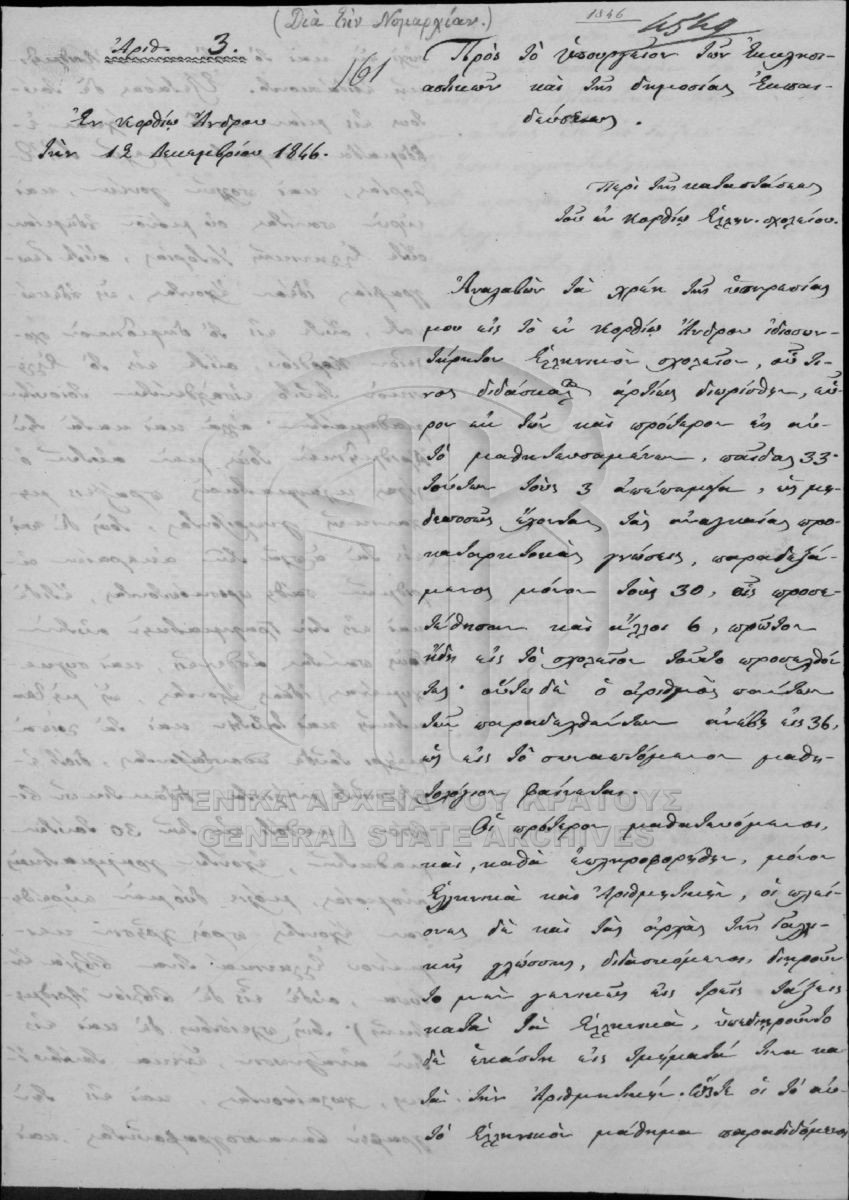 (Διὰ τὴν Νομαρχίαν.)
1846
4549
Ἀριθ. 3.
161
Πρὸς τὸ ὑπουργεῖον τῶν Ἐκκλησι-
αστικῶν καὶ τῆς δημοσίας Ἐκπαι-
δεύσεως.
Ἐν Κορθίῳ Ἄνδρου
τὴν 12 Δεκεμβρίου 1846.
Περὶ τῆς καταστάσεως
τοῦ ἐν Κορθίῳ Ἑλλην. σχολείου.
Ἀναλαβὼν τὰ χρέη τῆς ὑπηρεσίας
μου εἰς τὸ ἐν Κορθίῳ Ἄνδρου ἰδιοσυν-
τήρητον Ἑλληνικὸν σχολεῖον, οὗ τι-
νος διδάσκαλος ἀρτίως διωρίσθην, εὗ-
ρον ἐκ τῶν καὶ πρότερον εἰς αὐ-
τὸ μαθητευσαμένων, παῖδας 33·
τούτων τοὺς 3 ἀπέπεμψα, ὡς μη-
δεποσῶς ἔχοντας τὰς ἀναγκαίας προ-
καταρκτικὰς γνώσεις, παραδεξά-
μενος μόνον τοὺς 30, οἷς προσε-
τέθησαν καὶ ἄλλοι 6, πρῶτον
ἤδη εἰς τὸ σχολεῖον τοῦτο προσελθόν-
τες· οὕτω δὲ ὁ ἀριθμὸς πάντων
τῶν παραδεχθέντων ἀνέβη εἰς 36,
ὡς εἰς τὸ συναπτόμενον μαθη-
τολόγιον φαίνεται.
ΓΕΝΙΚΑ ΑΡΧΕΙΑ ΤΟΥ ΚΡΑΤΟΥΣ
GENERAL STATE ARCHIVES
Οἱ πρότερον μαθητευόμενοι,
καὶ, καθὰ ἐπληροφορήθην, μόνον
Ἑλληνικὰ καὶ Ἀριθμητικὴν, οἱ πλεί-
ονες δὲ καὶ τὰς ἀρχὰς τῆς Γαλλι-
κῆς γλώσσης, διδασκόμενοι, διῃροῦν-
το μὲν γενικῶς εἰς τρεῖς τάξεις
κατὰ τὰ Ἑλληνικὰ, ὑπεδιῃροῦντο
δὲ ἑκάστη εἰς τμήματά τινα κα-
τὰ τὴν Ἀριθμητικήν. ὥστε οἱ τὸ αὐ-
τὸ Ἑλληνικὸν μάθημα παραδιδόμενοι